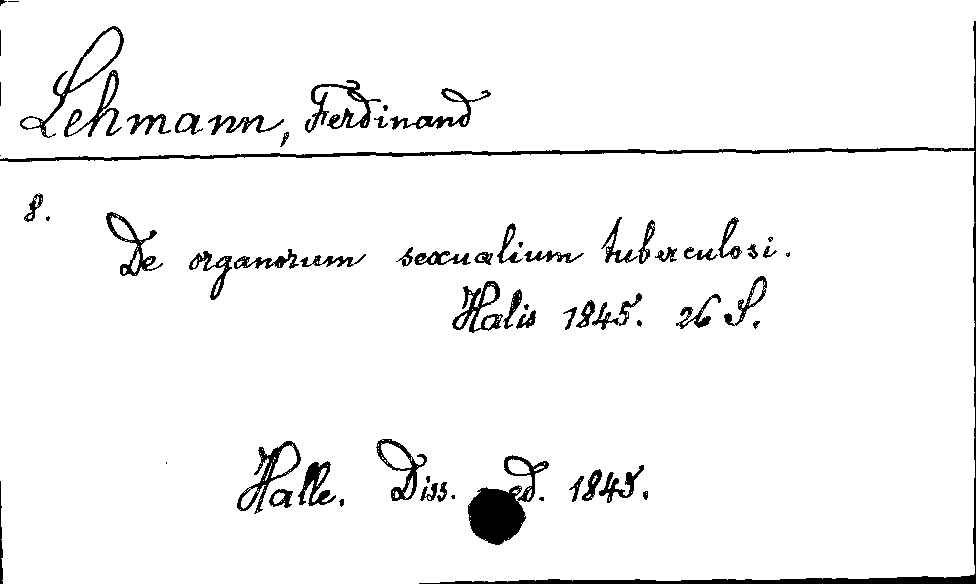 Lehmann, Ferdinand
8.
De organorum sexualium tuberculosi.
Halis 1845. 26 S.
Halle. Diss. med. 1845.